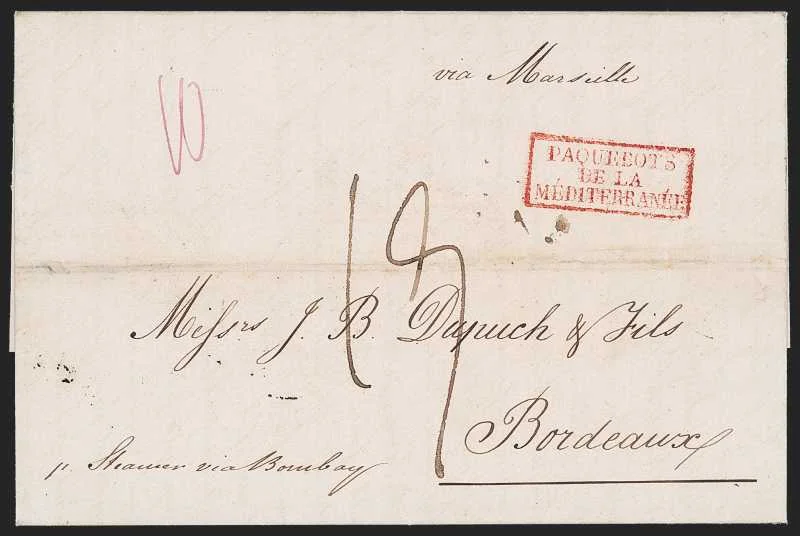 via Marseille
10
PAQUEBOTS
DE LA
MÉDITERRANÉE
Messrs J. B. Dupuch & Fils
Bordeaux
p. Steamer via Bombay